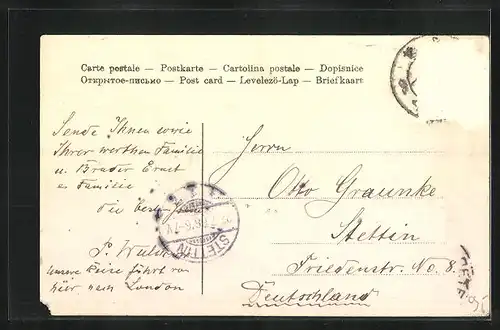 Carte postale — Postkarte — Cartolina postale — Dopisnice
Открытое-письмо — Post card — Levelező-Lap — Briefkaart
Sende Ihnen sowie
Ihrer werthen Familie
u. Bruder Ernst
Familie
die besten
unsere Reise führt von
hier nach London
Herrn
Otto Graunke
Stettin
Friedenstr. No 8.
Deutschland
STETTIN